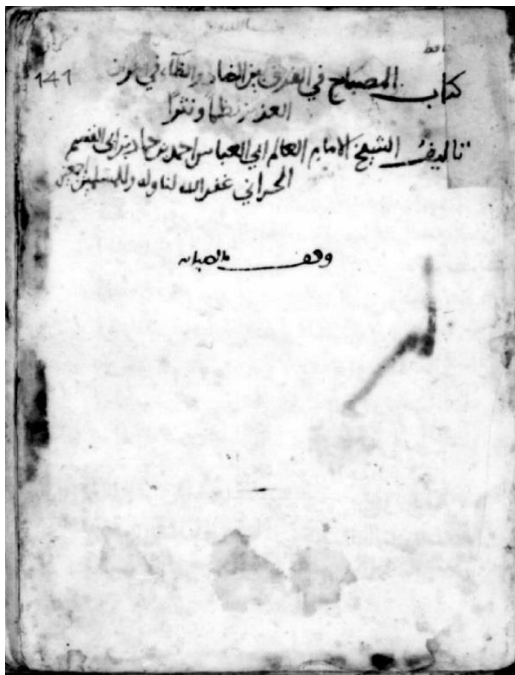 141
كتاب المصباح في الفرق بين الضاد والظاء في القرآن
العزيز نظما ونثرا
تاليف الشيخ الامام العالم ابي العباس احمد بن حماد بن ابي القسم
الحراني غفر الله لنا وله وللمسلمين اجمعين
وقف